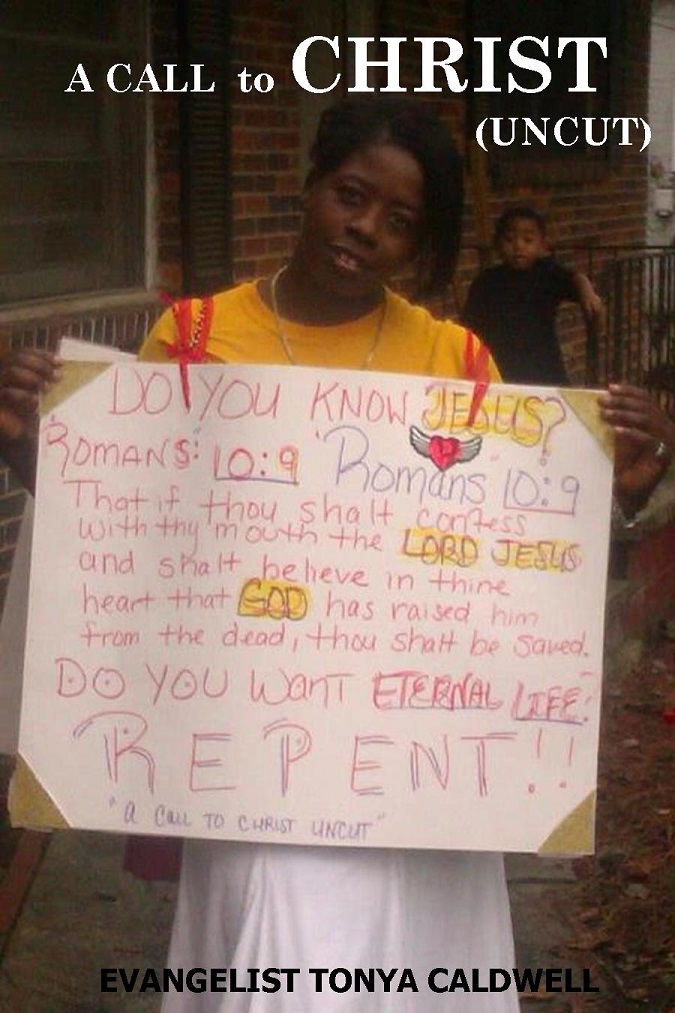 A CALL to CHRIST
(UNCUT)
DO YOU KNOW JESUS?
"ROMANS:" 10:9 "Romans" 10:9
That if thou shalt confess
with thy mouth the LORD JESUS
and shalt believe in thine
heart that GOD has raised him
from the dead, thou shalt be saved.
DO YOU WANT ETERNAL LIFE?
REPENT!!
"A CALL TO CHRIST UNCUT"
EVANGELIST TONYA CALDWELL